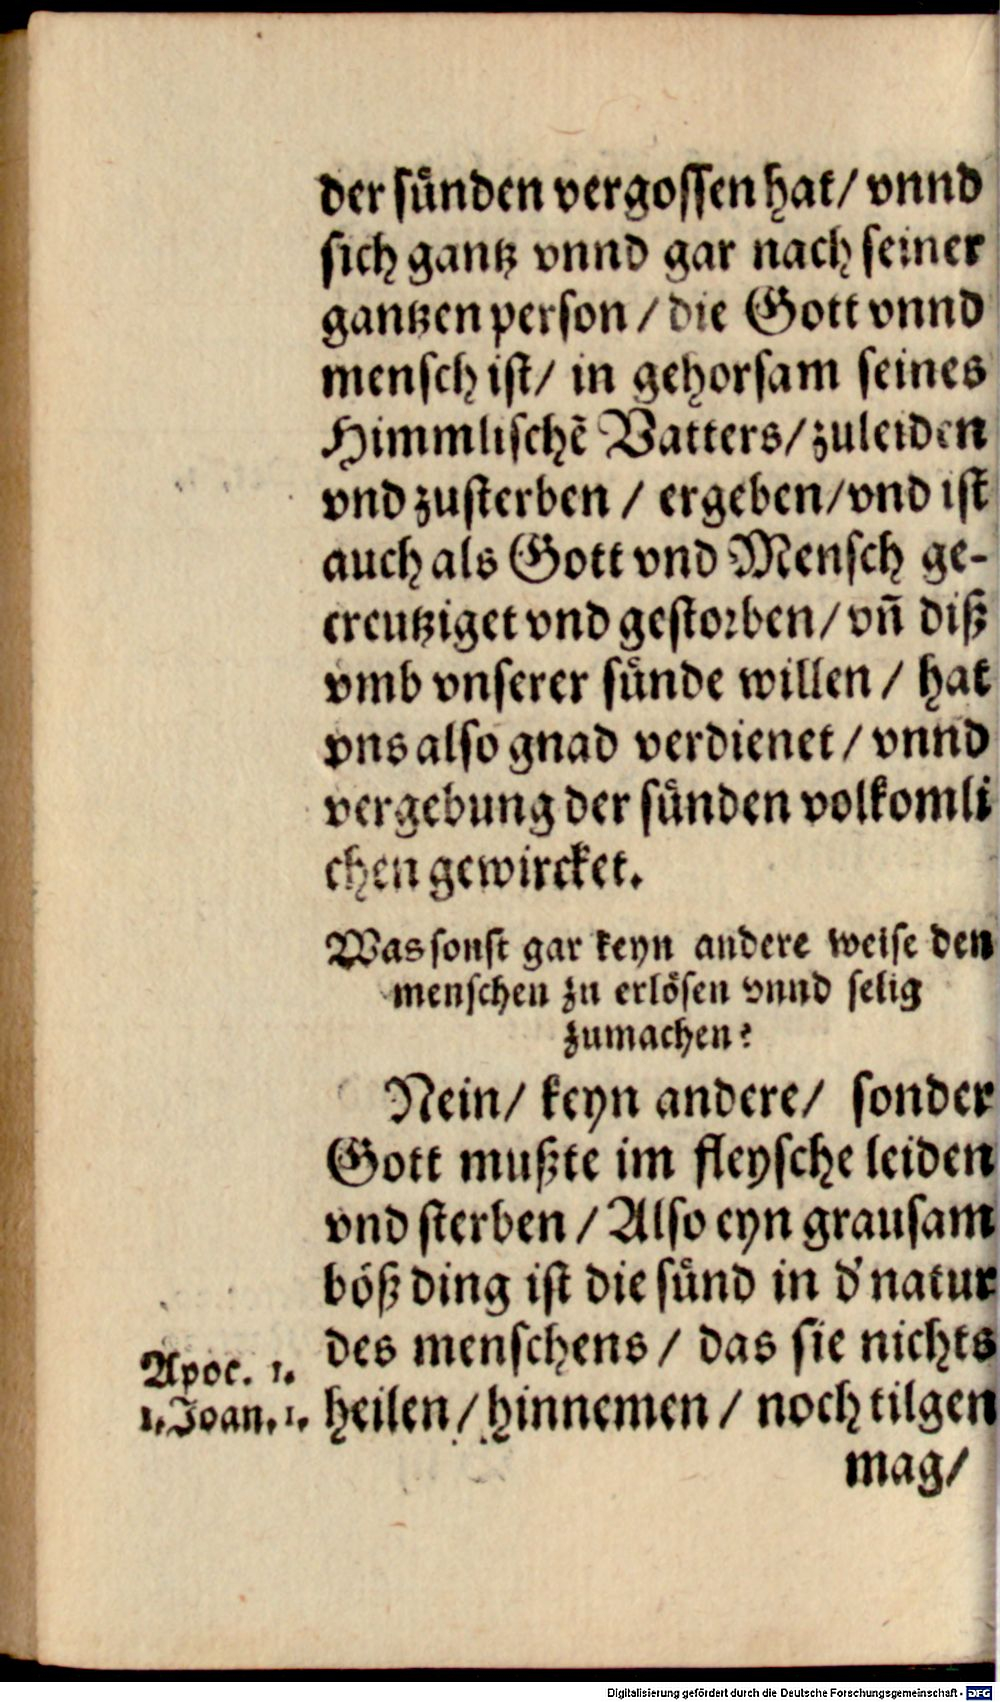 der sünden vergossen hat/ vnnd
sich gantz vnnd gar nach seiner
gantzen person / die Gott vnnd
mensch ist/ in gehorsam seines
Himmlischē Vatters/ zuleiden
vnd zusterben / ergeben/ vnd ist
auch als Gott vnd Mensch ge-
creutziget vnd gestorben/ vñ diß
vmb vnserer sünde willen / hat
vns also gnad verdienet / vnnd
vergebung der sünden volkomli
chen gewircket.
Was sonst gar keyn andere weise den
menschen zu erlösen vnnd selig
zumachen?
Nein/ keyn andere/ sonder
Gott mußte im fleysche leiden
vnd sterben / Also eyn grausam
böß ding ist die sünd in d' natur
des menschens / das sie nichts
Apoc. 1.
1. Joan. 1.
heilen / hinnemen / noch tilgen
mag/
Digitalisierung gefördert durch die Deutsche Forschungsgemeinschaft - DFG